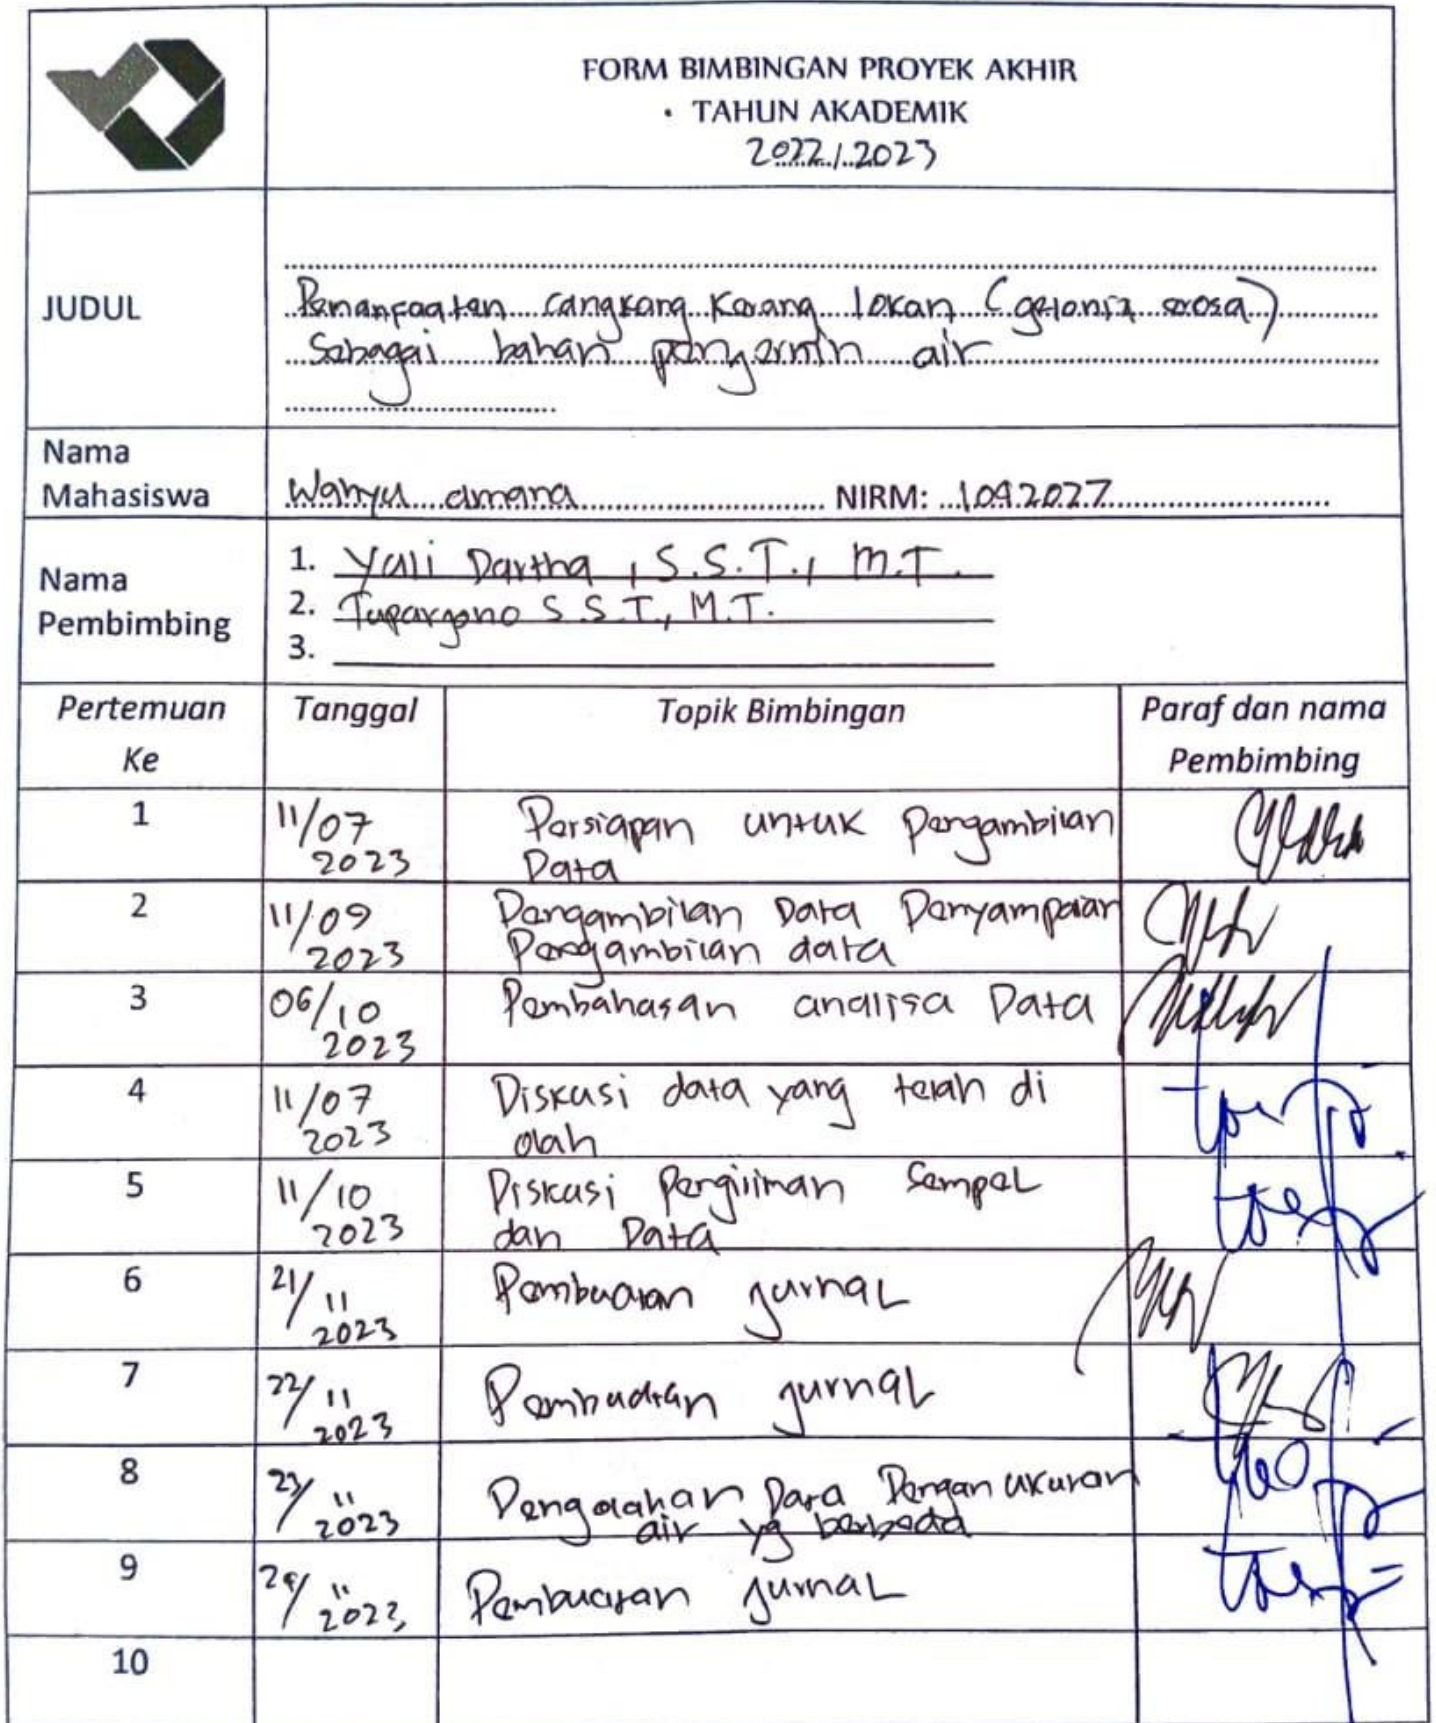 FORM BIMBINGAN PROYEK AKHIR
TAHUN AKADEMIK
2022/2023
JUDUL
Pemanfaatan cangkang Kerang lokan (geloniz erosa)
Sebagai bahan penjernih air
Nama
Mahasiswa
Wahyu amana NIRM: 1042027
Nama
Pembimbing
1. Yuli Dartha, S.S.T., M.T.
2. Tuparjono S.S.T., M.T.
3.
Pertemuan Ke
Tanggal
Topik Bimbingan
Paraf dan nama Pembimbing
1 11/07 2023 Persiapan untuk Pengambilan
Data
2 11/09 2023 Pengambilan Data Penyampaian
Pengambilan data
3 06/10 2023 Pembahasan analisa Data
4 11/07 2023 Diskusi data yang telah di
olah
5 11/10 2023 Diskusi Pengiriman Sampel
dan Data
6 21/11 2023 Pembuatan jurnal
7 22/11 2023 Pembuatan jurnal
8 23/11 2023 Pengolahan Data Dengan ukuran
air yg berbeda
9 11 Pembuatan jurnal
10